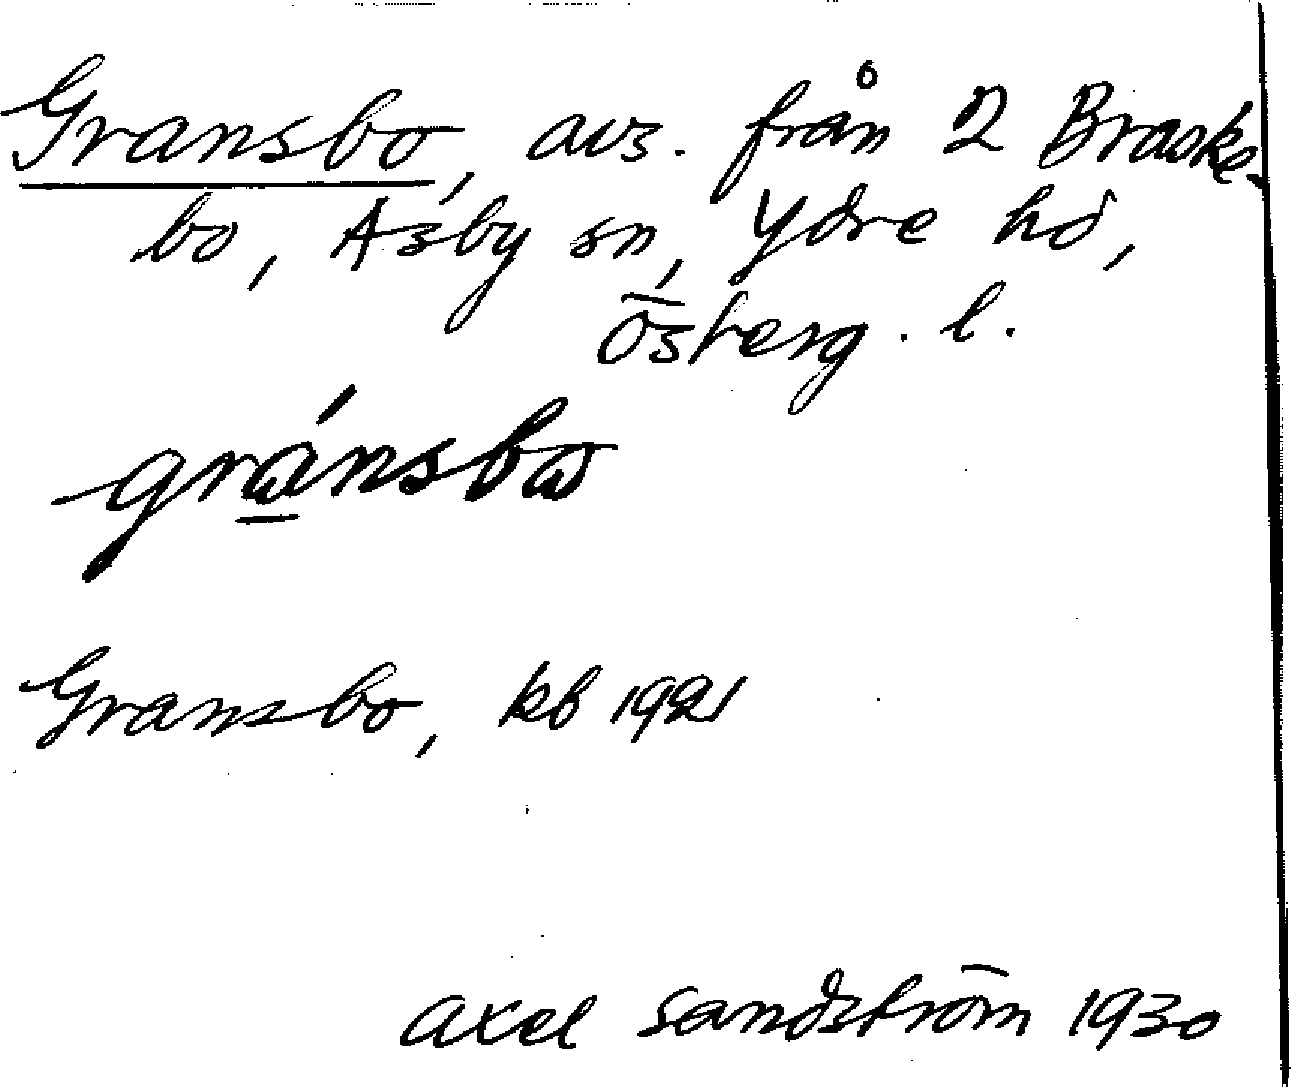 Gransbo, avs. från 2 Braske-
bo, Asby sn, Ydre hd,
Österg. l.
gránsbω
Gransbo, kb 1921
Axel Sandström 1930